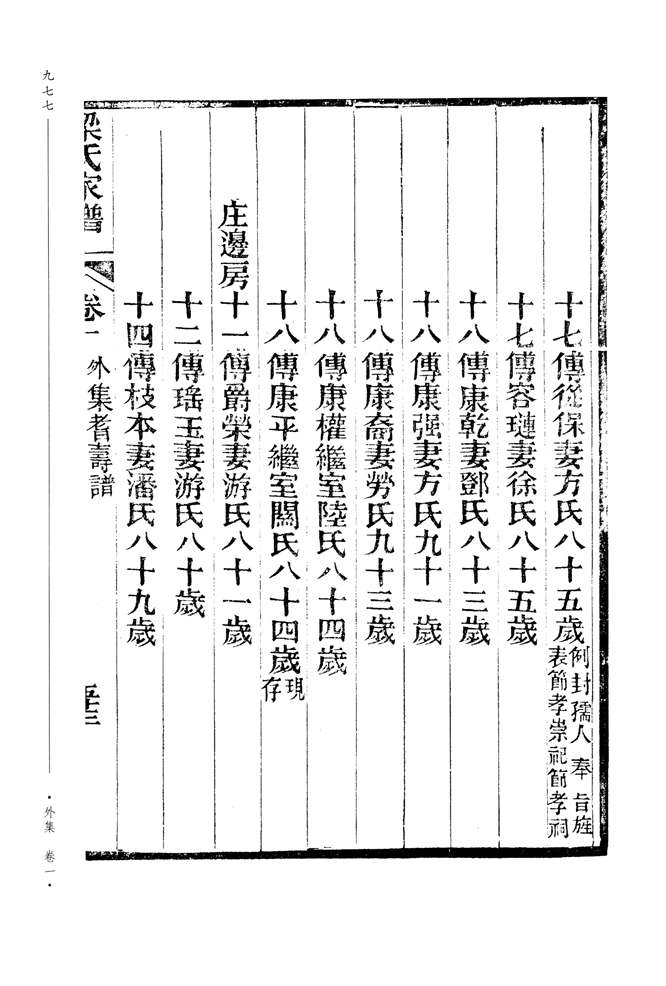 十七傳從保妻方氏八十五歲例封孺人 奉 旨旌表節孝崇祀節孝祠
十七傳容璉妻徐氏八十五歲
十八傳康乾妻鄧氏八十三歲
十八傳康强妻方氏九十一歲
十八傳康裔妻勞氏九十三歲
十八傳康權繼室陸氏八十四歲
十八傳康平繼室關氏八十四歲現存
庄邊房十一傳爵榮妻游氏八十一歲
十二傳瑤玉妻游氏八十歲
十四傳枝本妻潘氏八十九歲
梁氏家譜 卷一 外集耆壽譜
九七七
·外集 卷一·